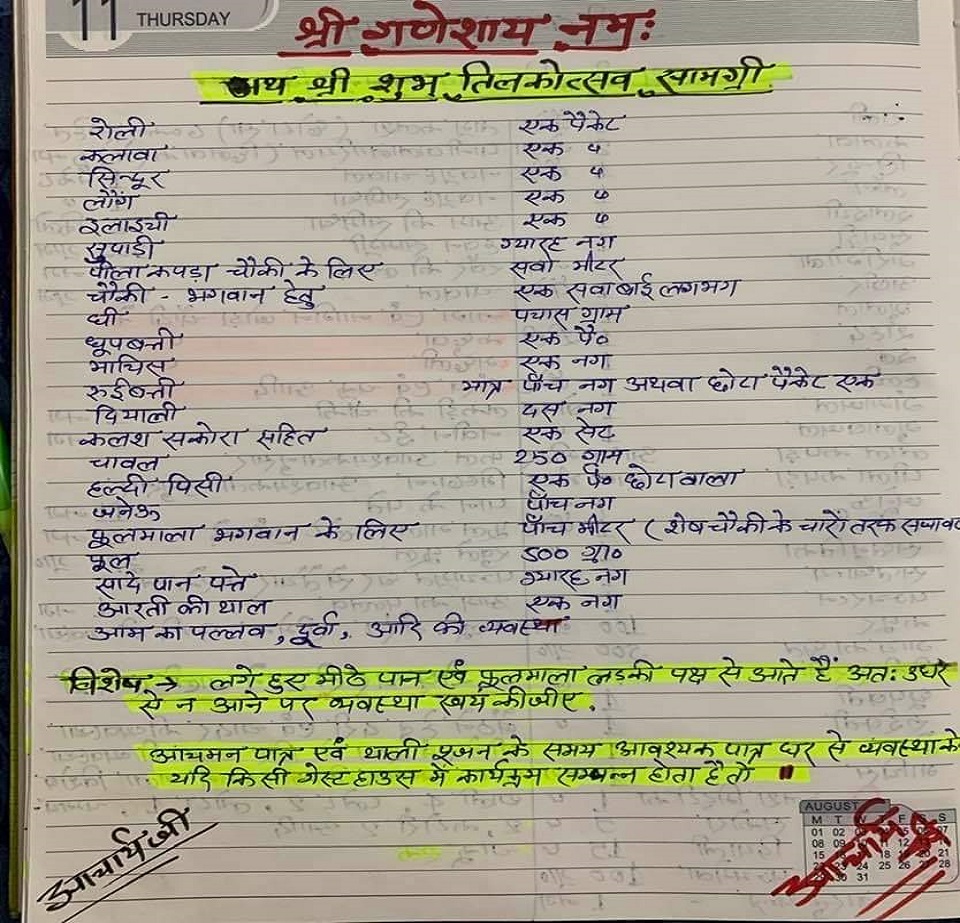 11 THURSDAY
श्री गणेशाय नमः
अथ श्री शुभ तिलकोत्सव सामग्री
रोली एक पैकेट
कलावा एक "
सिन्दूर एक "
लौंग एक "
इलाइची एक "
सुपाड़ी ग्यारह नग
पीला कपड़ा चौकी के लिए सवा मीटर
चौकी - भगवान हेतु एक सवा बाई लगभग
घी पचास ग्राम
धूपबत्ती एक पै०
माचिस एक नग
रुईबत्ती मात्र पाँच नग अथवा छोटा पैकेट एक
दियाली दस नग
कलश सकोरा सहित एक सेट
चावल 250 ग्राम
हल्दी पिसी एक पै० छोटा वाला
जनेऊ पाँच नग
फूलमाला भगवान के लिए पाँच मीटर (शेष चौकी के चारों तरफ सजावट
फूल 500 ग्रा०
सादे पान पत्ते ग्यारह नग
आरती की थाल एक नग
आम का पल्लव, दूर्वा, आदि की व्यवस्था
विशेष → लगे हुए मीठे पान एवं फूलमाला लड़की पक्ष से आते हैं अतः उधर
से न आने पर व्यवस्था स्वयं कीजीए.
आचमन पात्र एवं थाली पूजन के समय आवश्यक पात्र घर से व्यवस्था के
यदि किसी गेस्ट हाउस में कार्यक्रम सम्पन्न होता है तो ॥
आचार्य जी
AUGUST
M T S
01 02 07
08 09 11 12
15 18 19 21
24 25 26 28
30 31